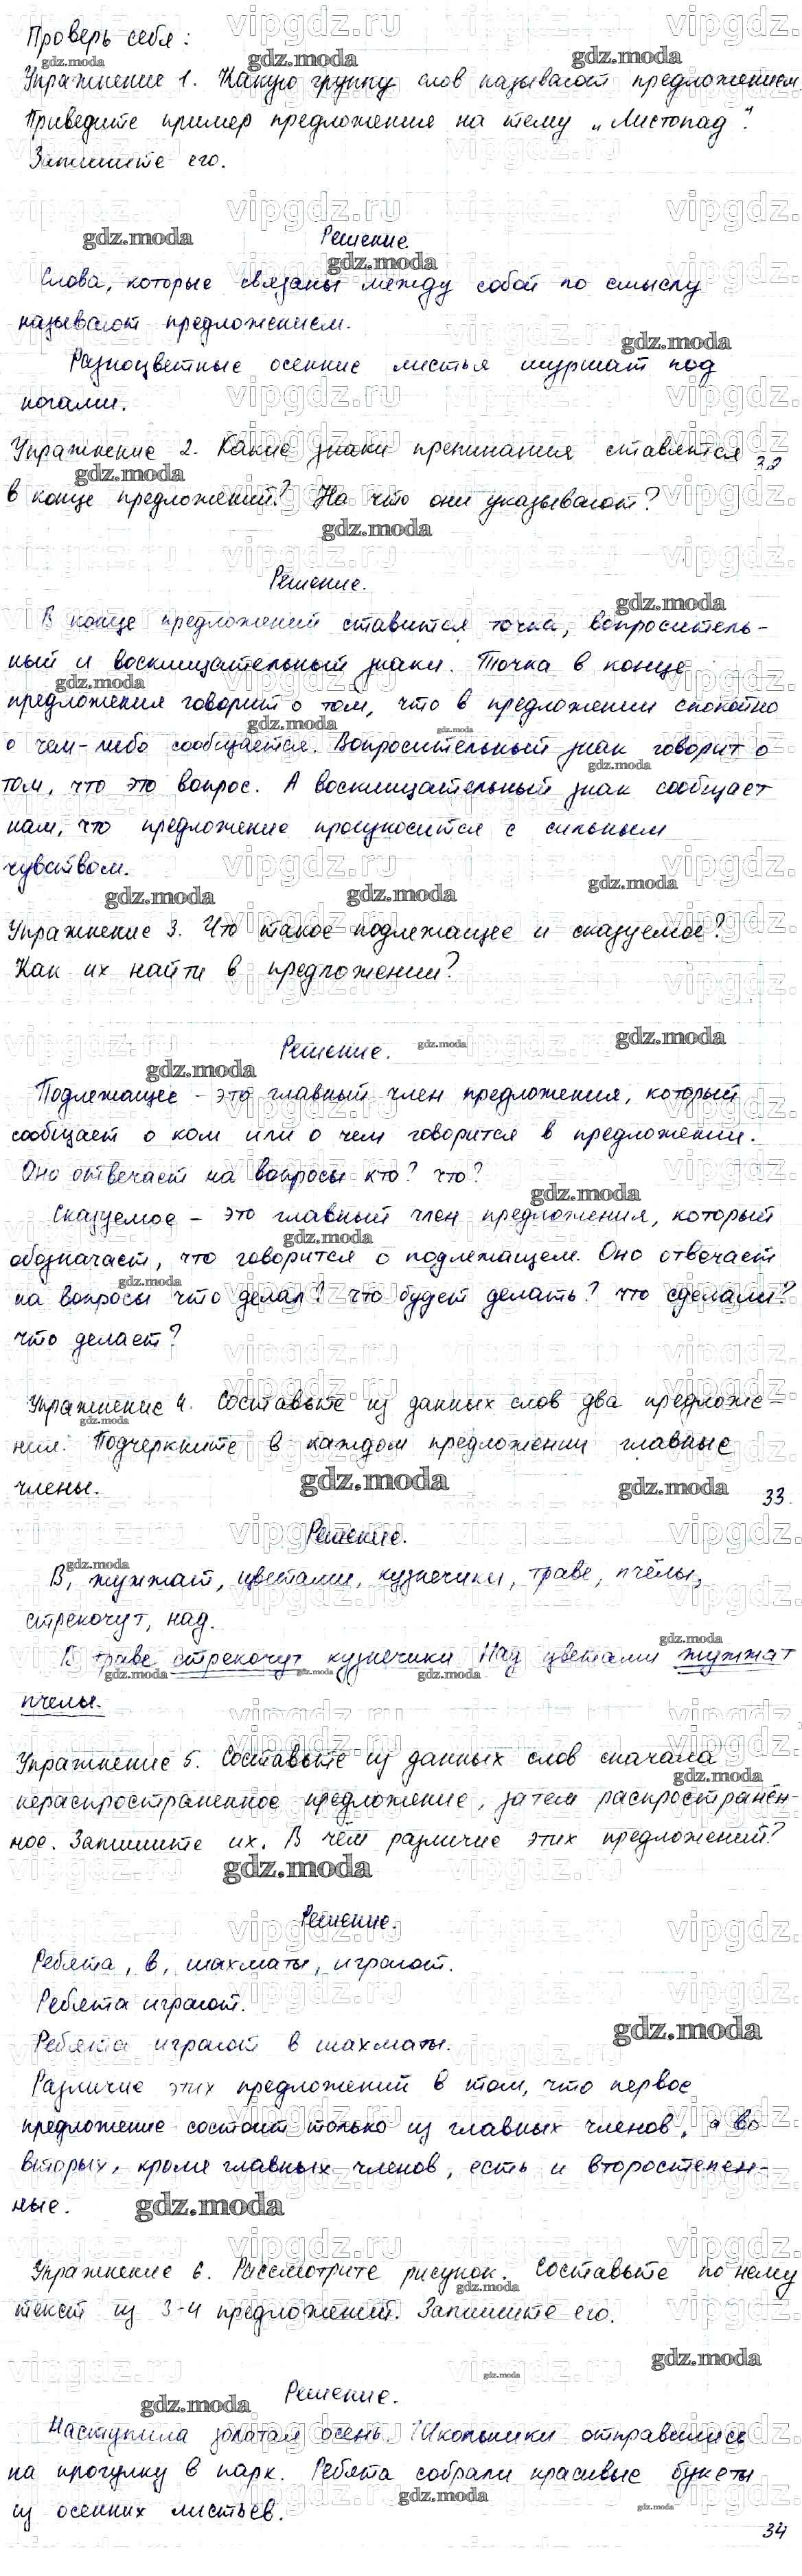 Проверь себя:
Упражнение 1. Какую группу слов называют предложением.
Приведите пример предложение на тему „Листопад".
Запишите его.
Решение.
Слова, которые связаны между собой по смыслу
называют предложением.
Разноцветные осенние листья шуршат под
ногами.
Упражнение 2. Какие знаки препинания ставятся
32
в конце предложений? На что они указывают?
Решение.
В конце предложений ставится точка, вопроситель-
ный и восклицательный знаки. Точка в конце
предложения говорит о том, что в предложении спокойно
о чем-либо сообщается. Вопросительный знак говорит о
том, что это вопрос. А восклицательный знак сообщает
нам, что предложение произносится с сильным
чувством.
Упражнение 3. Что такое подлежащее и сказуемое?
Как их найти в предложении?
Решение.
Подлежащее - это главный член предложения, который
сообщает о ком или о чем говорится в предложении.
Оно отвечает на вопросы кто? что?
Сказуемое - это главный член предложения, который
обозначает, что говорится о подлежащем. Оно отвечает
на вопросы что делал? что будет делать? что сделали?
что делает?
Упражнение 4. Составьте из данных слов два предложе-
ния. Подчеркните в каждом предложении главные
члены.
33.
Решение.
В, жужжат, цветами, кузнечики, траве, пчёлы,
стрекочут, над.
В траве стрекочут кузнечики Над цветами жужжат
пчелы.
Упражнение 5. Составьте из данных слов сначала
нераспространенное предложение, затем распространён-
ное. Запишите их. В чём различие этих предложений?
Решение.
Ребята, в, шахматы, играют.
Ребята играют.
Ребята играют в шахматы.
Различие этих предложений в том, что первое
предложение состоит только из главных членов, а во
вторых, кроме главных членов, есть и второстепен-
ные.
Упражнение 6. Рассмотрите рисунок. Составьте по нему
текст из 3-4 предложений. Запишите его.
Решение.
Наступила золотая осень. Школьники отправились
на прогулку в парк. Ребята собрали красивые букеты
из осенних листьев.
34